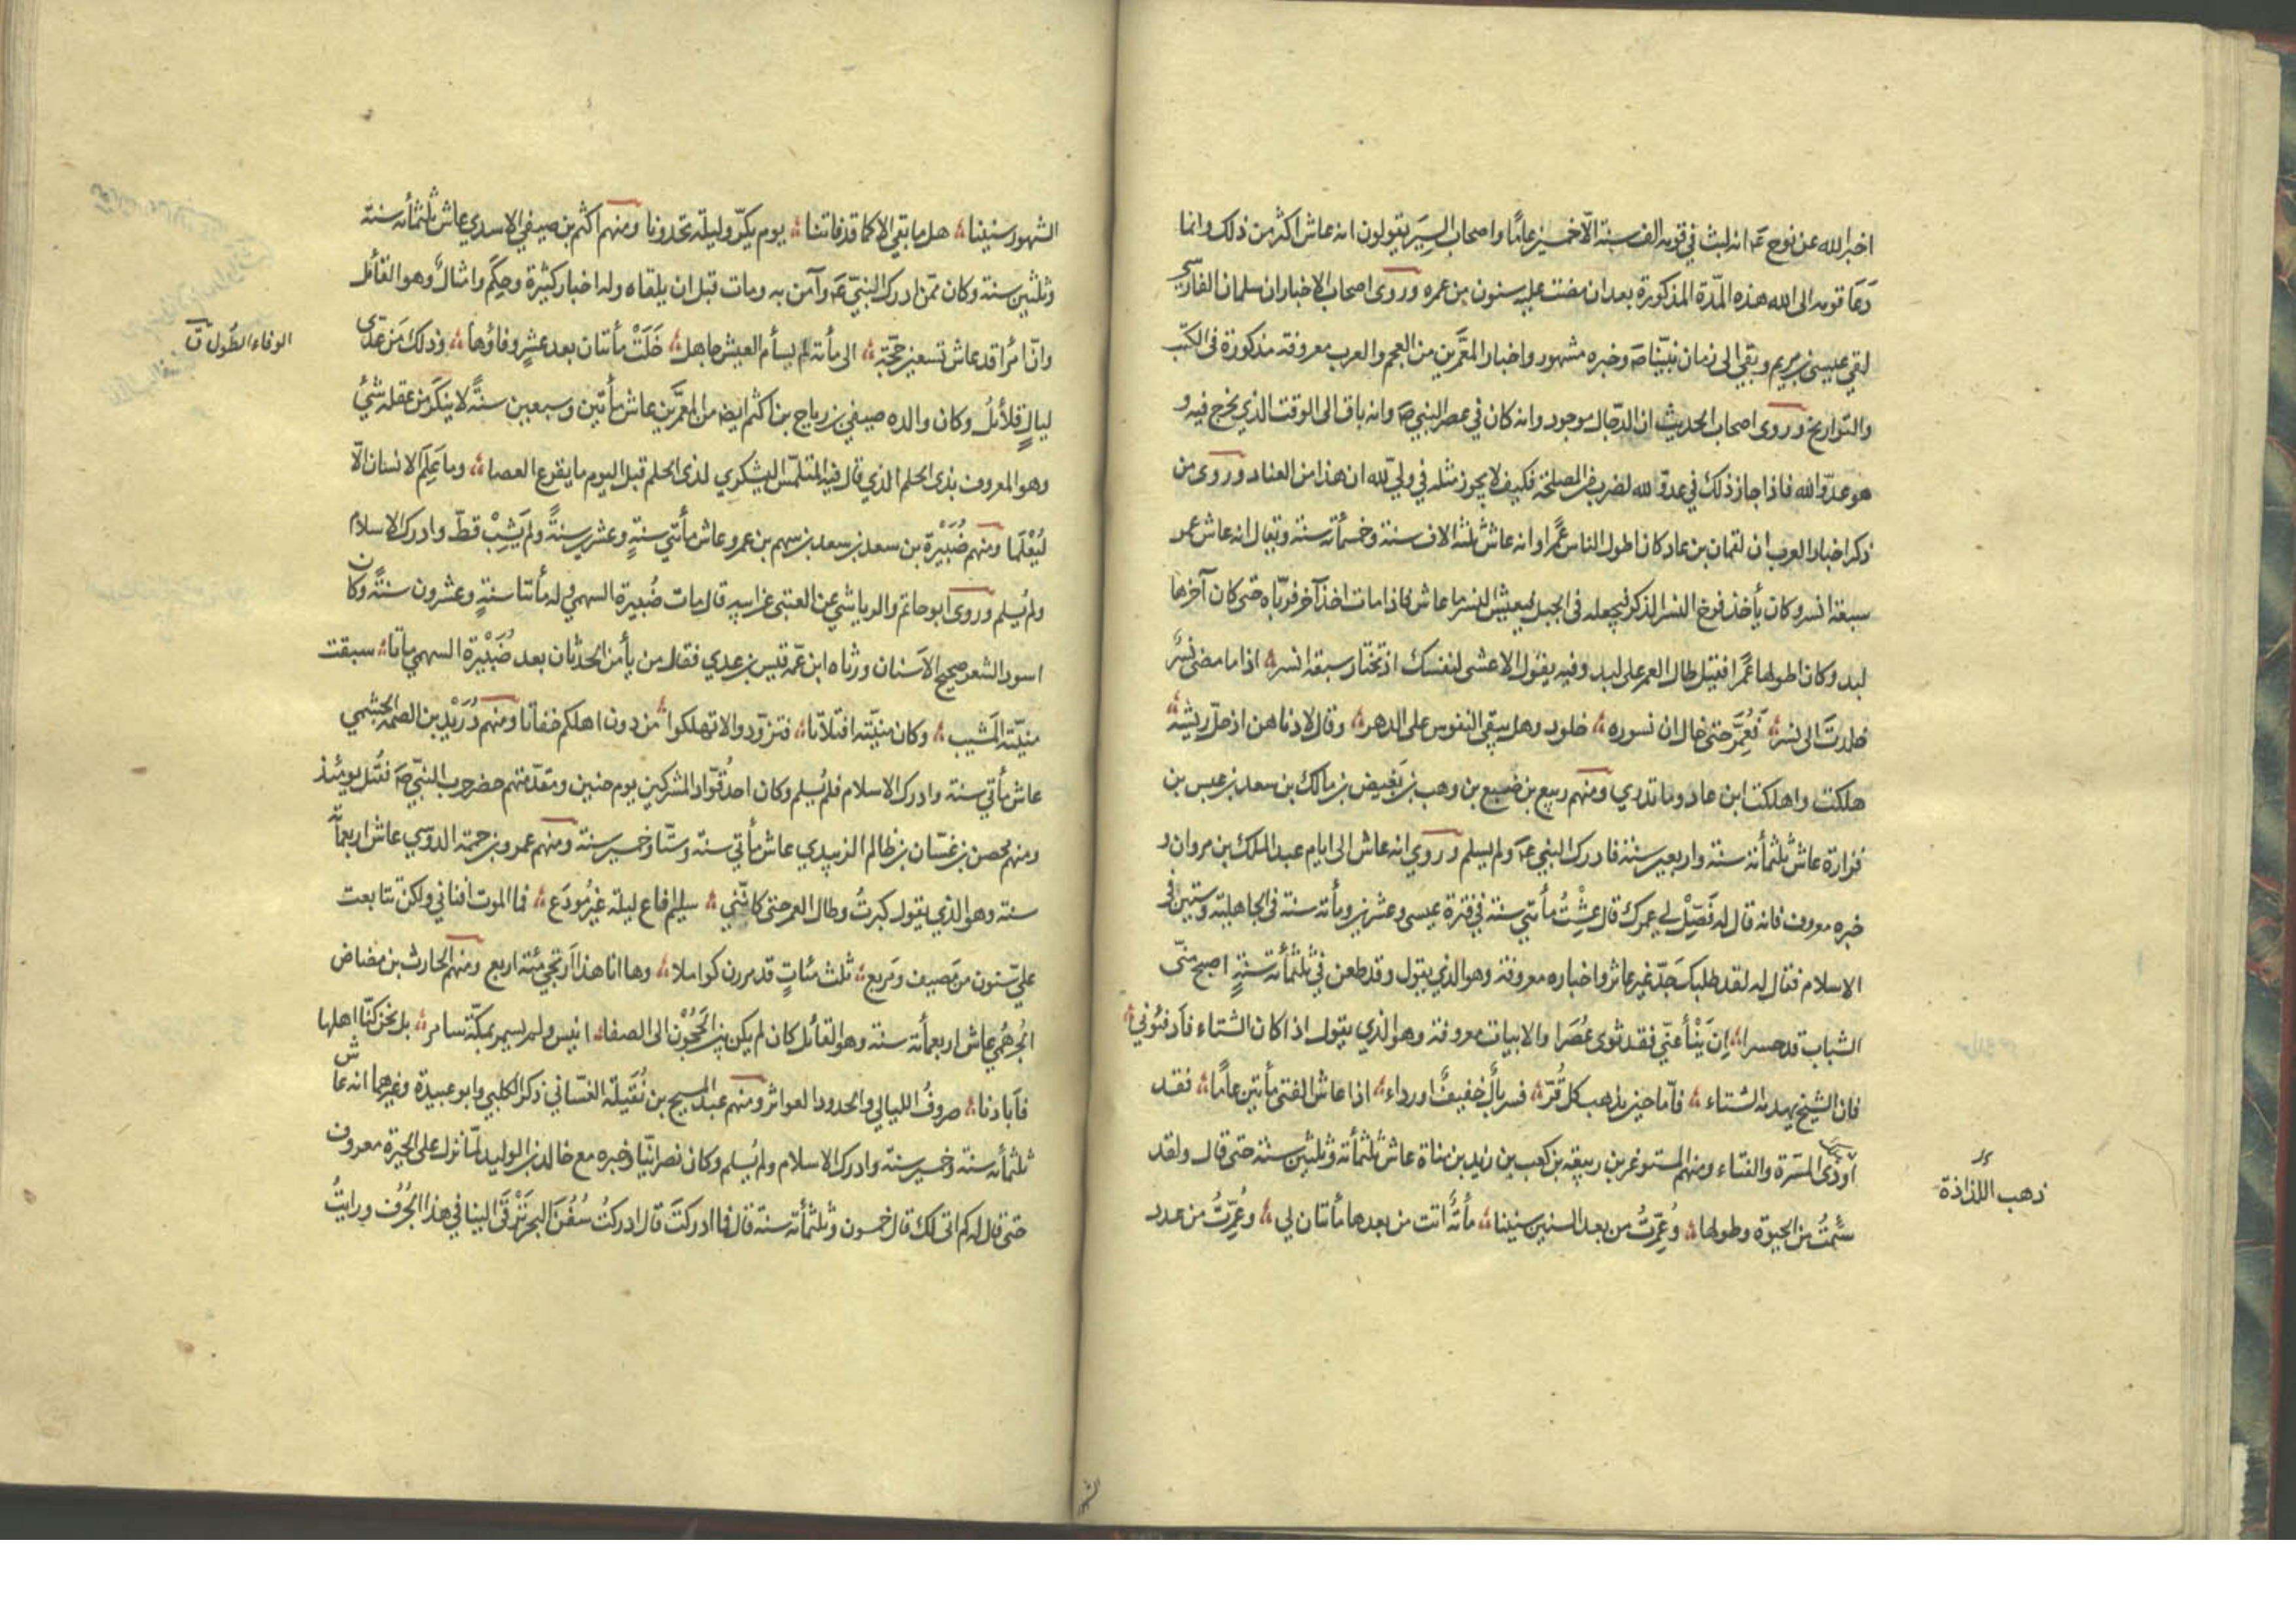 اخبر الله عن نوح عم انه لبث في قومه الف سنة الا خمسين عاما واصحاب السير يقولون انه عاش اكثر من ذلك وانما
دعا قومه الى الله هذه المدّة المذكورة بعد ان مضت عليه ستون من عمره وروى اصحاب الاخبار ان سلمان الفارسي
لقي عيسى بن مريم وبقي الى زمان نبيّنا صم وخبره مشهور واخبار المعمَّرين من العجم والعرب معروفة مذكورة فى الكتب
والتواريخ وروى اصحاب الحديث ان الدّجال موجود وانه كان في عصر النبي صم وانه باق الى الوقت الذي يخرج فيه و
هو عدوّ الله فاذا جاز ذلك في عدوّ الله لضرب من المصلحة فكيف لا يجوز مثله في وليّ الله ان هذا من العناد وروى من
ذكر اخبار العرب ان لقمان بن عاد كان اطول الناس عمرًا وانه عاش ثلثة الاف سنة وخمسمأته سنة ويقال انه عاش عمر
سبعة انسر وكان يأخذ فرخ النسر الذكر فيجعله فى الجبل فيعيش النسر ما عاش فاذا مات اخذ آخر فربّاه حتى كان آخرها
لبد وكان اطولها عمرًا فقيل طال العمر على لبد وفيه يقول الاعشى لنفسك اذ تختار سبعة انسر ؞ اذا ما مضى نسر
خلدت الى نسر ؞ فعُمّر حتى خال ان نسوره ؞ خلود وهل يبقى النفوس على الدهر ؞ وقال لادناهن اذ حلّ ريشه ؞
هلكت واهلكت ابن عاد وما تدري ومنهم ربيع بن ضبيع بن وهب بن بَغيض بن مالك بن سعد بن عبس بن
فزارة عاش ثلثمأته سنة واربعين سنة فادرك النبي عم ولم يسلم وروي انه عاش الى ايام عبد الملك بن مروان و
خبره معروف فانه قال له فَصِّلْ لي عمرك قال عِشْتُ مأتي سنة في فترة عيسى وعشرين ومأته سنة فى الجاهلية وستين فى
الاسلام فقال له لقد طلبك جَدّ غير عاثر واخباره معروفة وهو الذي يقول وقد طعن في ثلثمأته سنةٍ اصبح منّى
الشباب قد حسرا ؞ اِن يَنْأ عنّي فقد ثوى عُصَرا والابيات معروفة وهو الذي يقول اذا كان الشتاء فادفئوني ؞
فان الشيخ يهدمه الشتاء ؞ فآما حين يذهب كل قُرّ ؞ فسربالٌ خفيفٌ او رداء ؞ اذا عاش الفتى مأتين عامًا ؞ فقد
اَودى المسَرة والفتاء ومنهم المستوغر بن ربيعة بن كعب بن زيد بن مناة عاش ثلثمأته وثلثين سنة حتى قال ولقد
سئمتُ من الحيوة وطولها ؞ وعُمّرتُ من بعد السنين سنينا ؞ مأتهٌ اتت من بعدها مأتان لي ؞ وعُمّرتُ من عدد
ذهب اللذاذة
الشهور
الشهور سنينا ؞ هل ما بقي الا كما قد فاتنا ؞ يوم يكرّ وليلة تحدونا ومنهم اكثم بن صيفي الاسدي عاش ثلثمأته سنة
وثلثين سنة وكان ممّن ادرك النبيّ عم وآمن به ومات قبل ان يلقاه وله اخبار كثيرة وحِكَم وامثالٌ وهو القائل
وانّ امرًا قد عاش تسعين حجّة ؞ الى مأته لم يسأم العيش جاهل ؞ خَلَتْ مأتتان بعد عشرٍ وفاؤها ؞ وذلك مَن عدّى
ليالٍ قلائلُ وكان والده صيفي بن رياح بن اكثم ايضا من المعمَّرين عاش مأتين وسبعين سنةً لا ينكر من عقله شئ
وهو المعروف بذى الحلم الذي قال فيه المتلمّس اليشكري لذى الحلم قبل اليوم ما يقرع العصا ؞ وما عَلِمَ الانسان الّا
ليُعْلما ومنهم ضُبَيْرة بن سعد بن سعد بن سهم بن عمرو عاش مأتي سنةٍ وعشرين سنةً ولم يَشِبْ قطّ وادرك الاسلام
ولم يُسلم وروى ابو حاتم والرياشي عن العتبى عن ابيه قال مات ضُبيرة السهمي وله مأتتا سنةٍ وعشرون سنةً وكان
اسود الشعر صحيح الاَسنان ورثاه ابن عمّه قيس بن عدي فقال من يأمن الحدثان بعد ضُبَيْرة السهمي ماتا ؞ سبقت
منيّته المشيب ؞ وكان منيّته افتلاتا ؞ فتزوّدوا لا تهلكوا ؞ من دون اهلكم خفاتا ومنهم دُرَيْد بن الصمّه الجشمي
عاش مأتي سنة وادرك الاسلام فلم يُسلم وكان احد قُوّاد المشركين يوم حنين ومقدّمتهم حضر حرب النبيّ صم فقُتل يومئذ
ومنهم محصن بن غسّان بن ظالم الزبيدي عاش مأتي سنة وستّا وخمسين سنة ومنهم عمرو بن حممة الدوسي عاش اربعمأة
سنة وهو الذي يقول كبرتُ وطال العمر حتى كانّني ؞ سليم افاع ليلة غيرُ مودَع ؞ فما الموت افناني ولكن تتابعت
عليّ سنون من مَصيف ومَربع ؞ ثلث مئاتٍ قد مررن كواملا ؞ وها انا هذا أرتجي مئة اربع ومنهم الحارث بن مضاض
الجُرهُمي عاش اربعمأته سنة وهو القائل كان لم يكن بين الحَجُوْن الى الصفا ؞ انيس ولم يسمر بمكّة سامر ؞ بل نحن كنّا اهلها
فآبادنا ؞ صروفُ الليالي والجدود العواثر ومنهم عبد المسيح بن بُقَيلة الغسّاني ذكر الكلبي وابو عبيدة وغيرهما انه عاش
ثلثمأته سنة وخمسين سنة وادرك الاسلام ولم يُسلم وكان نصرانيّا وخبره مع خالد بن الوليد لمّا نزل على الحيرة معروف
حتى قال له كم اتى لك قال خمسون وثلثمأته سنة قال فما ادركتَ قال ادركتُ سُفُنَ البحر تَرْقَى الينا في هذا الجُرُف ورايتُ
الوفاء الطول ق